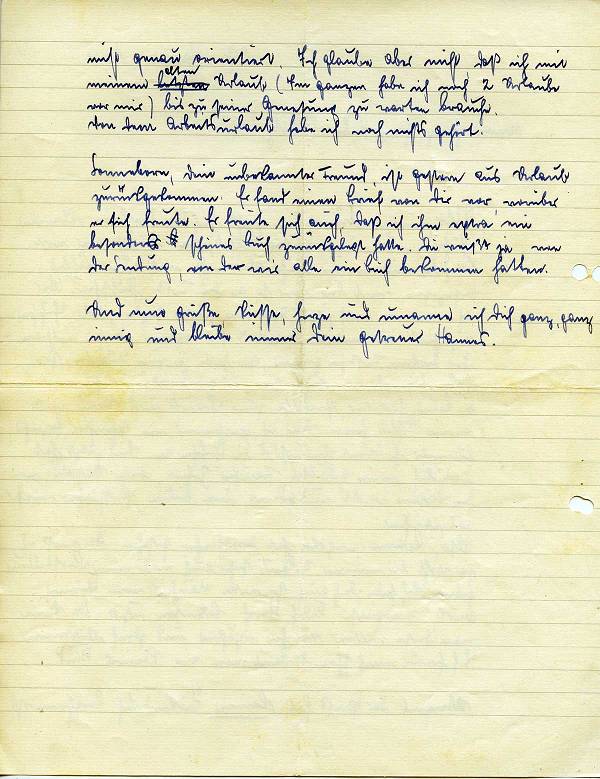 nicht genau orientiert. Ich glaube aber nicht, daß ich mit
meinem alten letzten Urlaub (Im ganzen habe ich noch 2 Urlaube
vor mir) bis zu seiner Genesung zu warten brauche.
Von dem Arbeitsurlaub habe ich noch nichts gehört.
Sonneborn, dein unbekannter Freund, ist gestern aus Urlaub
zurückgekommen. Er fand einen Brief von Dir vor, worüber
er sich freute. Er freute sich auch, daß ich ihm extra ein
besonders schönes Buch zurückgelegt hatte. Du weißt ja von
der Sendung, von der wir alle ein Buch bekommen hatten.
Und nun grüße, küsse, herze und umarme ich Dich ganz, ganz
innig und bleibe immer dein getreuer Hannes.